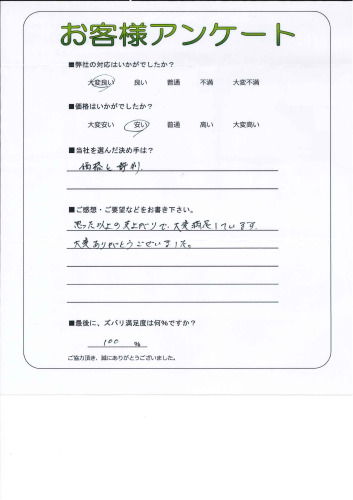 お客様アンケート
■弊社の対応はいかがでしたか?
大変良い 良い 普通 不満 大変不満
■価格はいかがでしたか?
大変安い 安い 普通 高い 大変高い
■当社を選んだ決め手は?
価格と評判.
■ご感想・ご要望などをお書き下さい。
思った以上の仕上がりで、大変満足しています。
大変ありがとうございました。
■最後に、ズバリ満足度は何%ですか?
100 %
ご協力頂き、誠にありがとうございました。